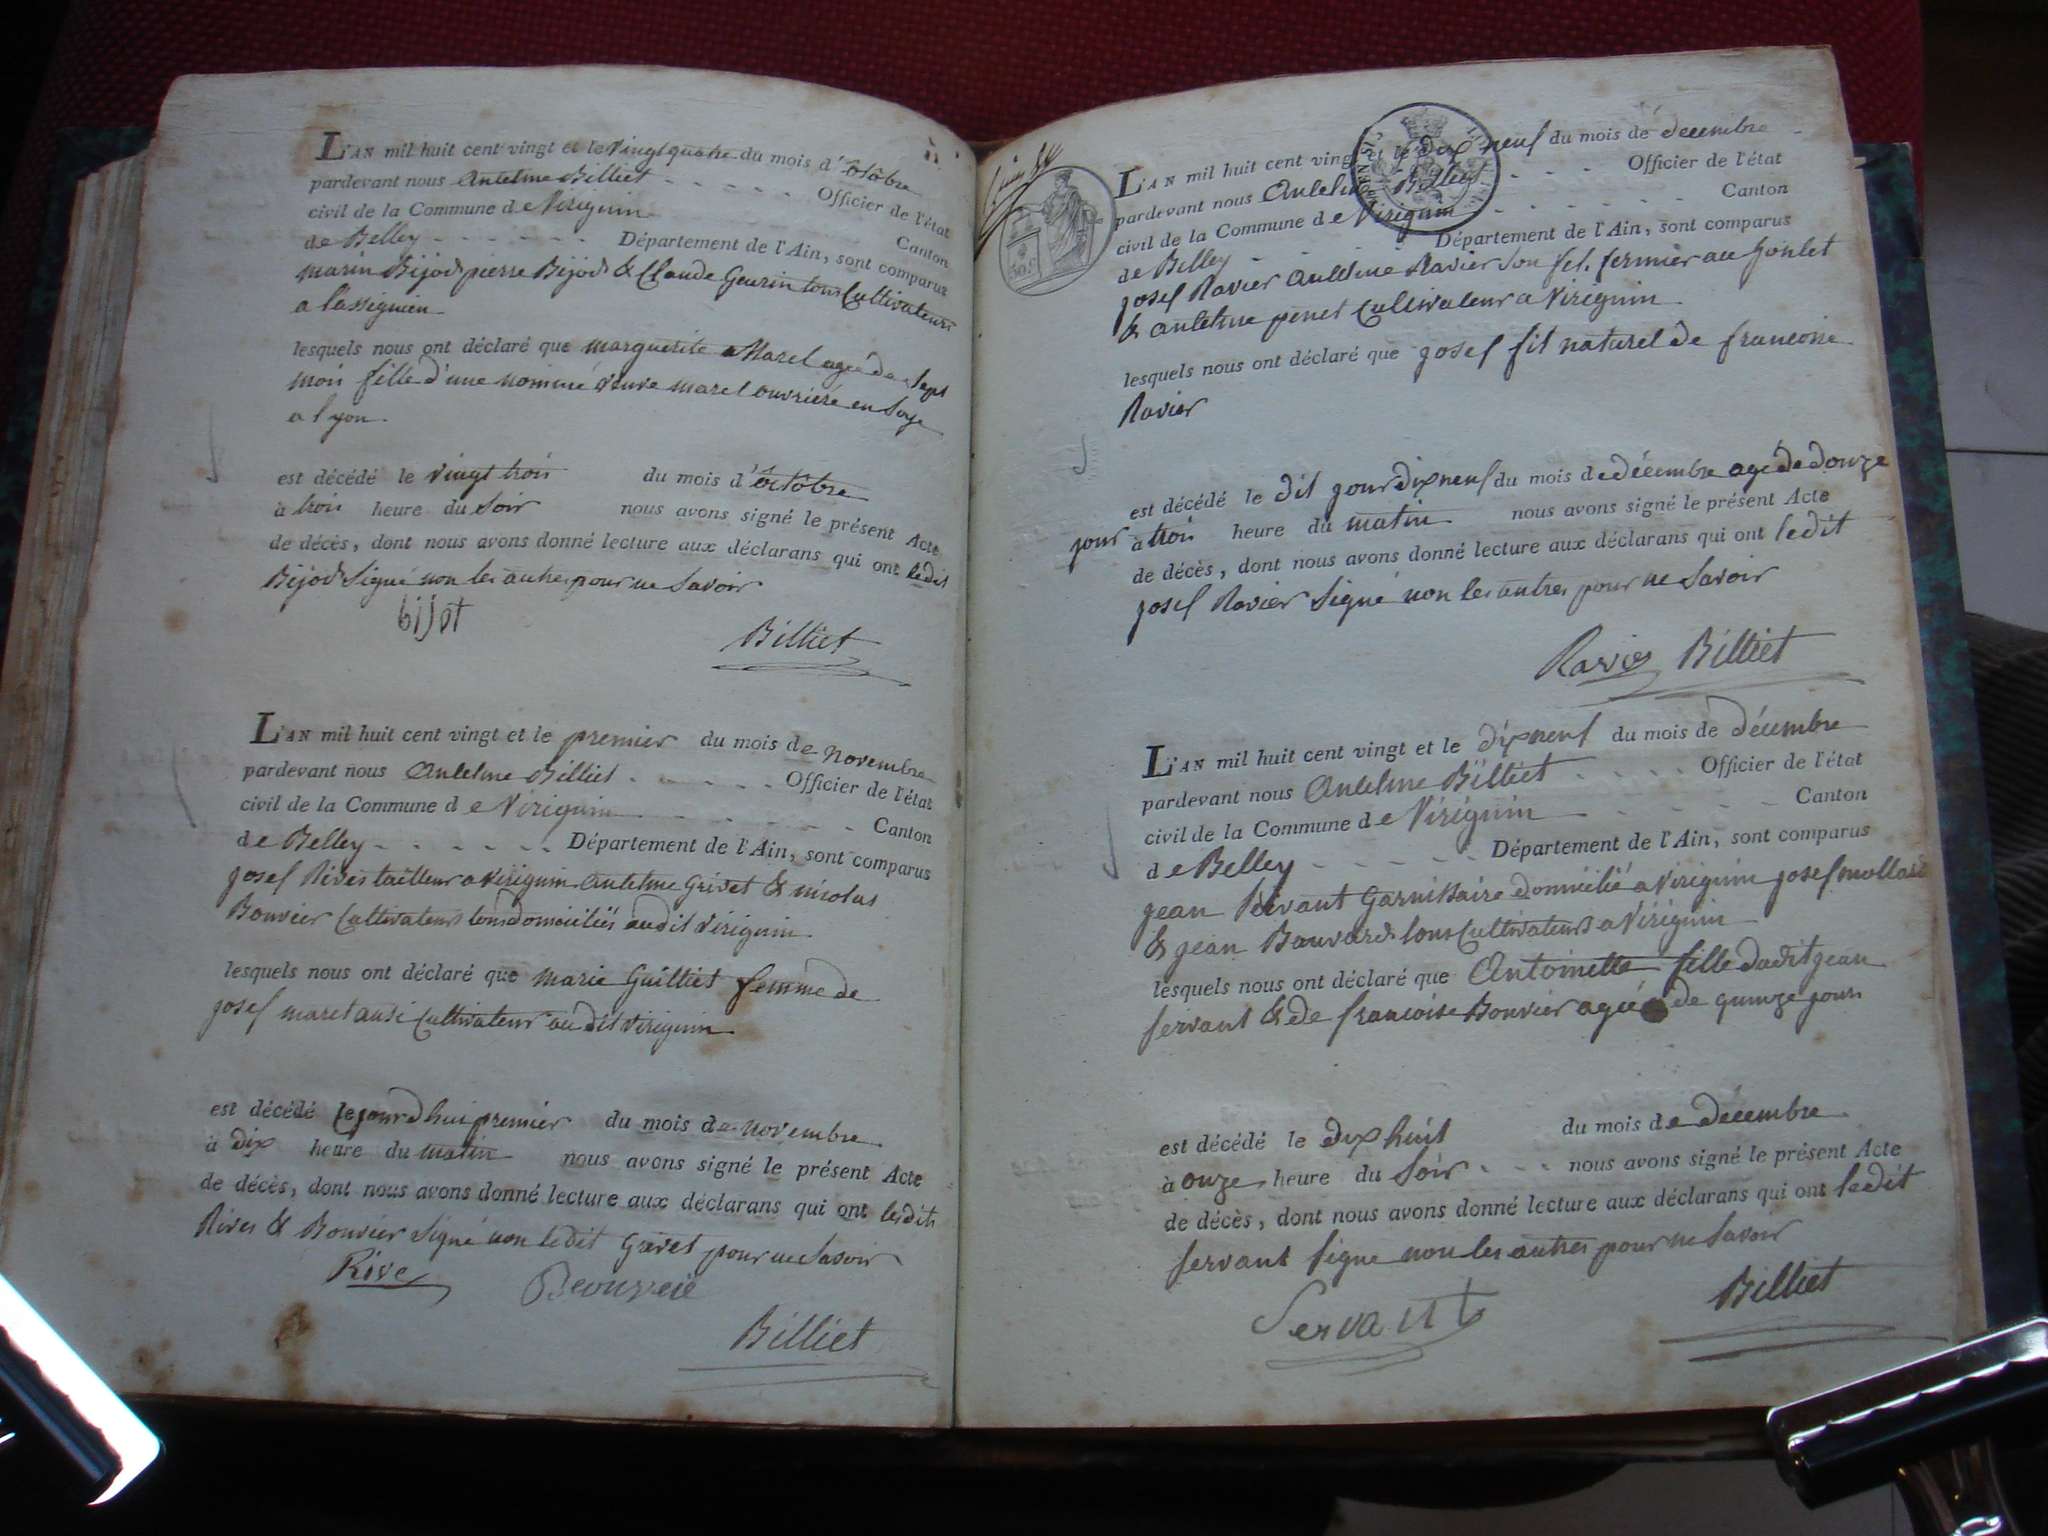 L'AN mil huit cent vingt et le vingt quatre du mois d'octôbre
pardevant nous Antelme Billiet Officier de l'état
civil de la Commune de Virignin Canton
de Belley Département de l'Ain, sont comparus
marin Bijod pierre Bijod & Claude Geurin tous Cultivateurs
a lassignieu
lesquels nous ont déclaré que marguerite Marel agée de sept
mois fille d'une nommé veuve marel ouvriére en Soye
a lyon
est décédé le vingt trois du mois d'octôbre
à trois heure du Soir nous avons signé le présent Acte
de décès, dont nous avons donné lecture aux déclarans qui ont ledit
Bijod Signé non les autres pour ne Savoir
bijot
Billiet
L'AN mil huit cent vingt et le premier du mois de novembre
pardevant nous Antelme Billiet Officier de l'état
civil de la Commune de Virignin Canton
de Belley Département de l'Ain, sont comparus
josef Rives tailleur a virignin Antelme Grivet & nicolas
Bouvier Cultivateurs tous domiciliés audit Virignin
lesquels nous ont déclaré que marie Guilliet femme de
josef maret Cultivateur au dit virignin
est décédé le jourdhui premier du mois de novembre
à dix heure du matin nous avons signé le présent Acte
de décès, dont nous avons donné lecture aux déclarans qui ont lesdits
Rives & Bouvier Signé non ledit Grivet pour ne Savoir
Rive
Billiet
L'AN mil huit cent vingt et le dix neuf du mois de decembre
pardevant nous Antelme Billiet Officier de l'état
civil de la Commune de Virignin Canton
de Belley Département de l'Ain, sont comparus
josef Ravier Antelme Ravier son fil. fermier au Goulet
& antelme penet Cultivateur a Virignin
lesquels nous ont déclaré que josef fil naturel de francoise
Ravier
est décédé le dit jour dix neuf du mois de décembre age de douze
jour à trois heure du matin nous avons signé le présent Acte
de décès, dont nous avons donné lecture aux déclarans qui ont ledit
josef Ravier Signé non les autres pour ne Savoir
Ravier Billiet
L'AN mil huit cent vingt et le dix neuf du mois de décembre
pardevant nous Antelme Billiet Officier de l'état
civil de la Commune de Virignin Canton
de Belley Département de l'Ain, sont comparus
jean Servant Garnissaire domicilié a Virignin josef mollard
& jean Bouvard tous Cultivateurs a Virignin
lesquels nous ont déclaré que Antoinette fille dudit jean
servant & de francoise Bouvier agée de quinze jours
est décédé le dix huit du mois de décembre
à onze heure du Soir nous avons signé le présent Acte
de décès, dont nous avons donné lecture aux déclarans qui ont ledit
servant Signe non les autres pour ne Savoir
Servant
Billiet